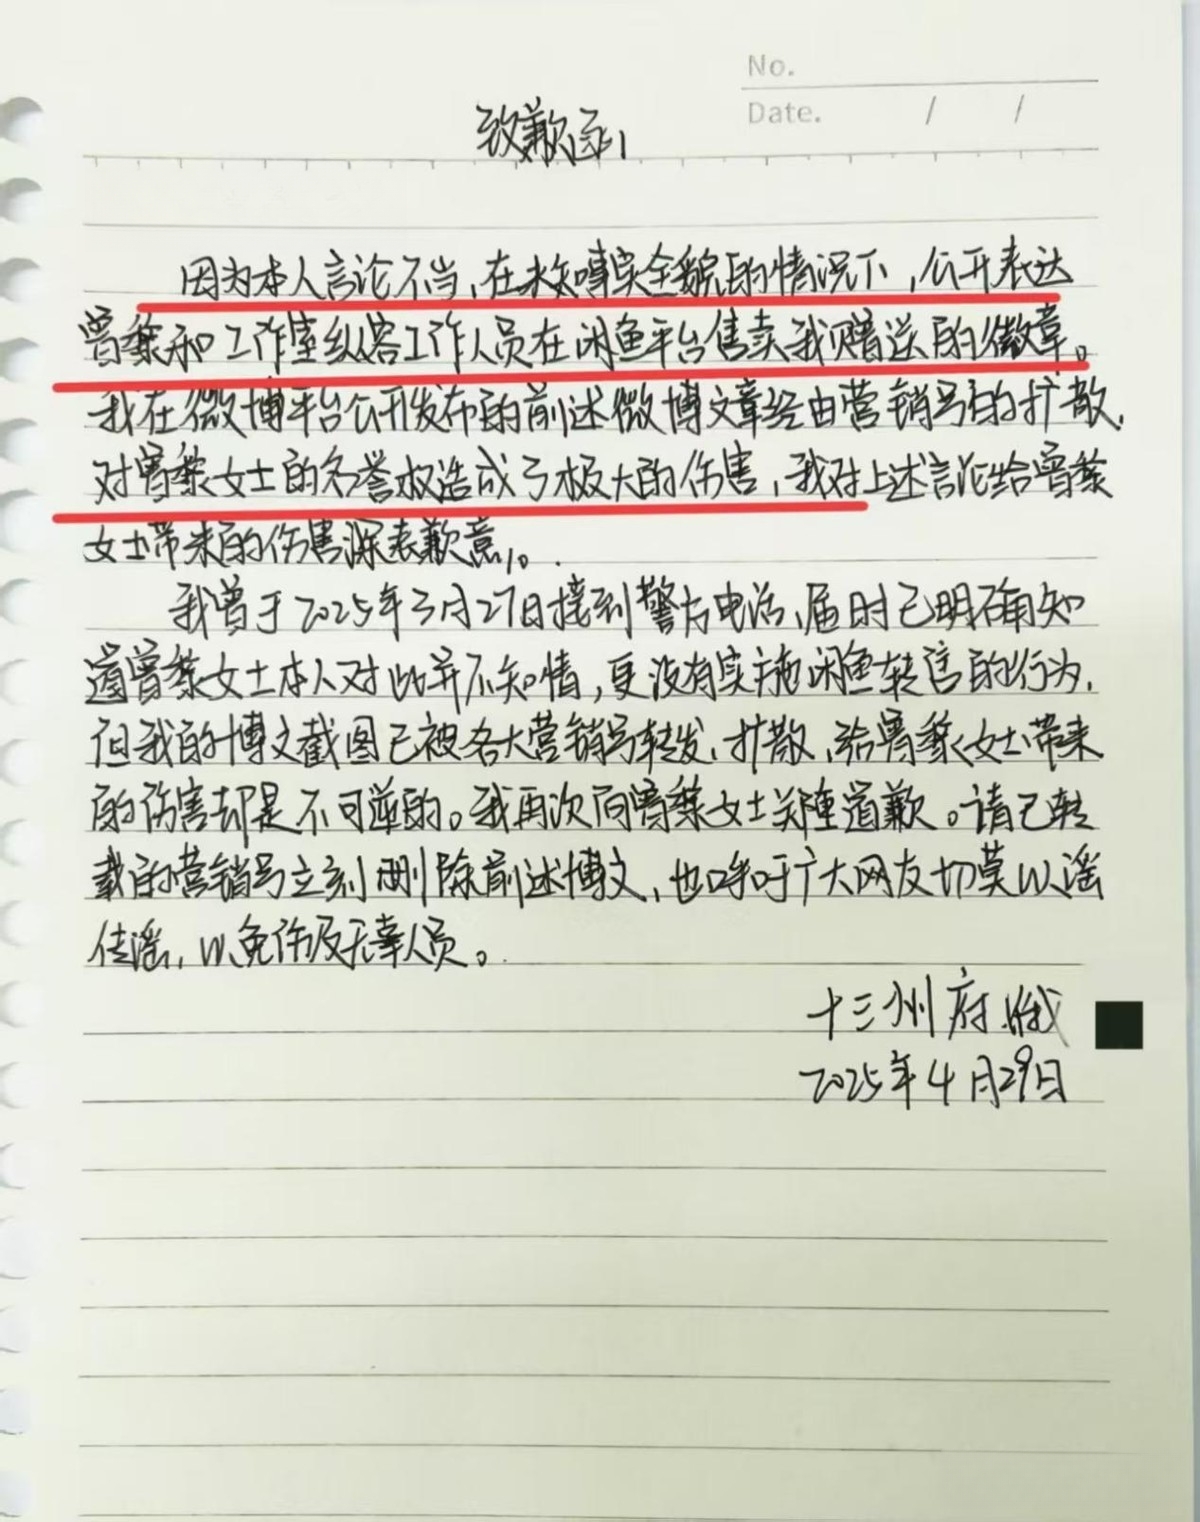 No.
Date. / /
致歉函
因为本人言论不当，在未知事实全貌的情况下，公开表达
曾黎和工作室纵容工作人员在闲鱼平台售卖我赠送的徽章。
我在微博平台公开发布的前述微博文章经由营销号的扩散，
对曾黎女士的名誉权造成了极大的伤害，我对上述言论给曾黎
女士带来的伤害深表歉意。
我曾于2025年3月27日接到警方电话，届时已明确知
道曾黎女士本人对此并不知情，更没有实施闲鱼转售的行为，
但我的博文截图已被各大营销号转发，扩散，给曾黎女士带来
的伤害却是不可逆的。我再次向曾黎女士郑重道歉。请已转
载的营销号立刻删除前述博文，也呼吁广大网友切莫以谣
传谣，以免伤及无辜人员。
十三州府
2025年4月29日